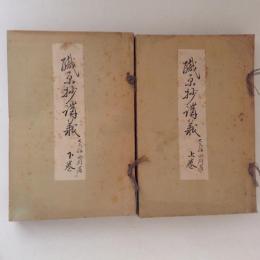 職原抄講義
上巻
職原抄講義
下巻